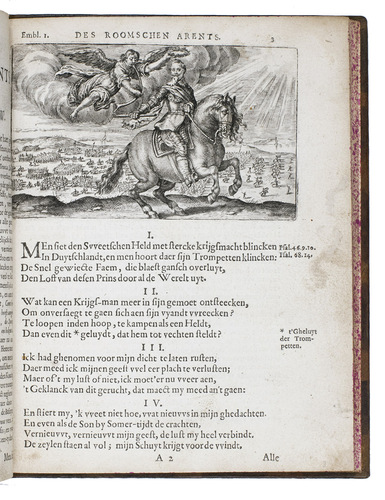 Embl. 1. DES ROOMSCHEN ARENTS. 3
I.
MEn siet den Svveetschen Held met stercke krijgsmacht blincken
In Duytschlandt, en men hoort daer sijn Trompetten klincken:
De Snel gewieckte Faem, die blaest gansch overluyt,
Den Loff van desen Prins door al de Werelt uyt.
Psal. 46.9.10.
Psal. 68.24.
II.
Wat kan een Krijgs-man meer in sijn gemoet ontsteecken,
Om onversaegt te gaen sich aen sijn vyandt vvreecken?
Te loopen inden hoop, te kampen als een Heldt,
Dan even dit * geluydt, dat hem tot vechten stelt?
* t'Gheluyt
der Trom-
petten.
III.
Ick had ghenomen voor mijn dicht te laten rusten,
Daer med ick mijnen geest vvel eer plach te verlusten;
Maer of't my lust of niet, ick moet'er nu vveer aen,
't Geklanck van dit gerucht, dat maeckt my meed an't gaen:
IV.
En stiert my, 'k vveet niet hoe, vvat nieuvvs in mijn ghedachten.
En even als de Son by Somer-tijdt de crachten,
Vernieuvvt, vernieuvvt mijn geest, de lust my heel verbindt.
De zeylen staen al vol; mijn Schuyt krijgt voor de vvindt.
A 2 Alle